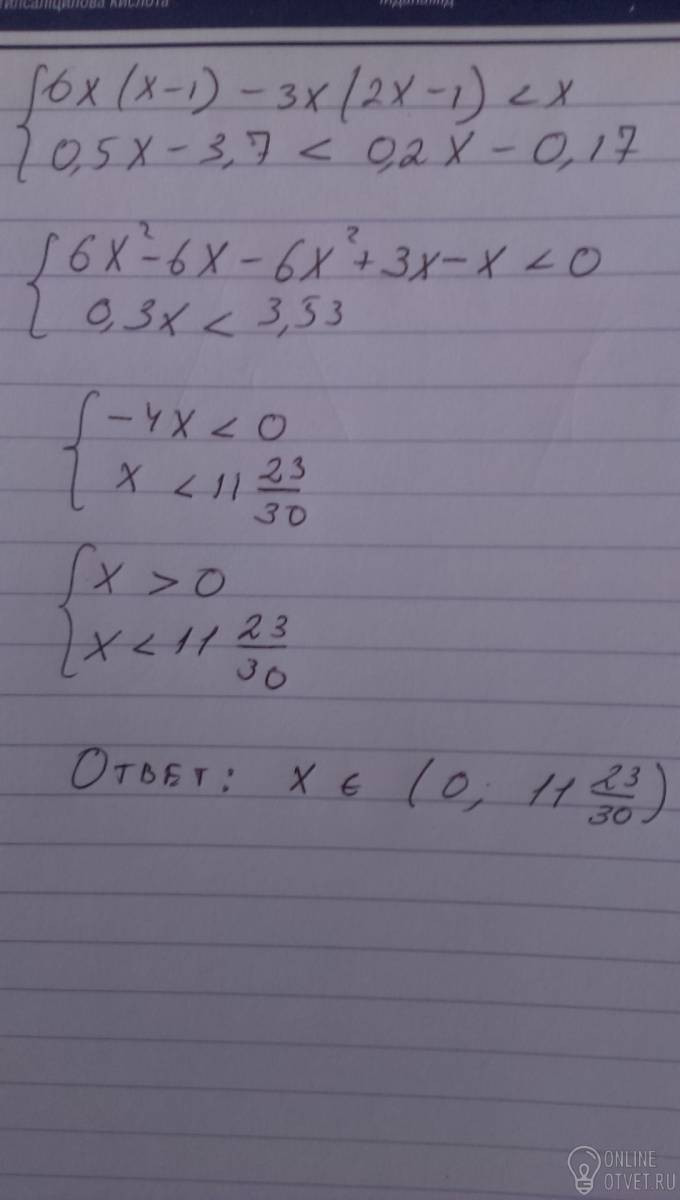 {6x(x-1) - 3x(2x-1) < x
{0,5x - 3,7 < 0,2x - 0,17
{6x² - 6x - 6x² + 3x - x < 0
{0,3x < 3,53
{-4x < 0
{x < 11 23/30
{x > 0
{x < 11 23/30
Ответ: x ∈ (0; 11 23/30)
ONLINE
OTVET.RU